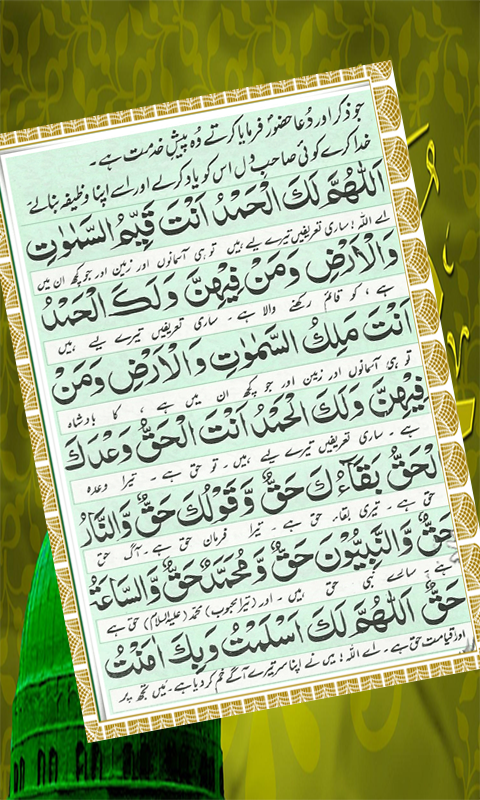 جو ذکر اور دُعا حضورؐ فرمایا کرتے وُہ پیشِ خدمت ہے۔
خدا کرے کوئی صاحبِ دل اس کو یاد کرلے اور اسے اپنا وظیفہ بنالے۔
اَللّٰهُمَّ لَكَ الْحَمْدُ اَنْتَ قَيِّمُ السَّمٰوٰتِ
اے اللہ! ساری تعریفیں تیرے لیے ہیں تو ہی آسمانوں اور زمین اور جو کچھ ان میں
وَالْاَرْضِ وَمَنْ فِيْهِنَّ وَلَكَ الْحَمْدُ
ہے ، کو قائم رکھنے والا ہے۔ ساری تعریفیں تیرے لیے ہیں
اَنْتَ مَلِكُ السَّمٰوٰتِ وَالْاَرْضِ وَمَنْ
تو ہی آسمانوں اور زمین اور جو کچھ ان میں ہے ، کا بادشاہ
فِيْهِنَّ وَلَكَ الْحَمْدُ اَنْتَ الْحَقُّ وَعْدَكَ
ہے۔ ساری تعریفیں تیرے لیے ہیں۔ تو حق ہے۔ تیرا وعدہ
لْحَقُّ بَقَآءُكَ حَقٌّ وَّقَوْلُكَ حَقٌّ وَّالنَّارُ
حق ہے۔ تیری بقاء حق ہے۔ تیرا فرمان حق ہے۔ آگ حق
حَقٌّ وَّالنَّبِيُّوْنَ حَقٌّ وَّمُحَمَّدٌ حَقٌّ وَّالسَّاعَةُ
ہے۔ سارے نبی حق ہیں۔ اور (تیرا محبوب) محمّد (علیہ السلام) حق ہے
حَقٌّ اَللّٰهُمَّ لَكَ اَسْلَمْتُ وَبِكَ اٰمَنْتُ
اور قیامت حق ہے۔ اے اللہ! میں نے اپنا سر تیرے آگے خم کر دیا ہے۔ میں تجھ پر